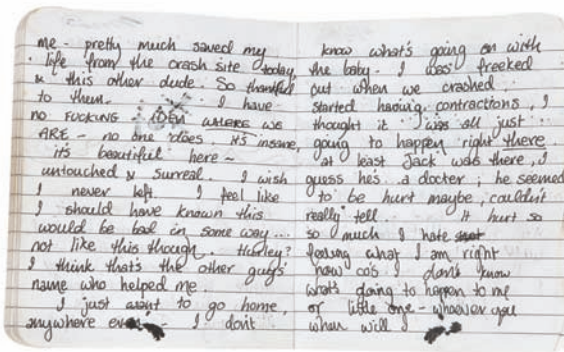 me - pretty much saved my
life from the crash site today,
& this other dude. So thankful
to them. I have
no FUCKING IDEA WHERE WE
ARE - no one does. it's insane,
it's beautiful here ~
untouched & surreal. I wish
I never left. I feel like
I should have known this
would be bad in some way...
not like this though. Hurley?
I think that's the other guys'
name who helped me.
I just want to go home,
anywhere - I don't
know what's going on with
the baby. I was freeked
out when we crashed.
started having contractions, I
thought it was all just
going to happen right there.
at least Jack was there, I
guess he's a docter; he seemed
to be hurt maybe, couldn't
really tell. it hurt so
so much I hate
feeling what I am right
now cos I don't know
what's going to happen to me
or little one - whoever you
when will I